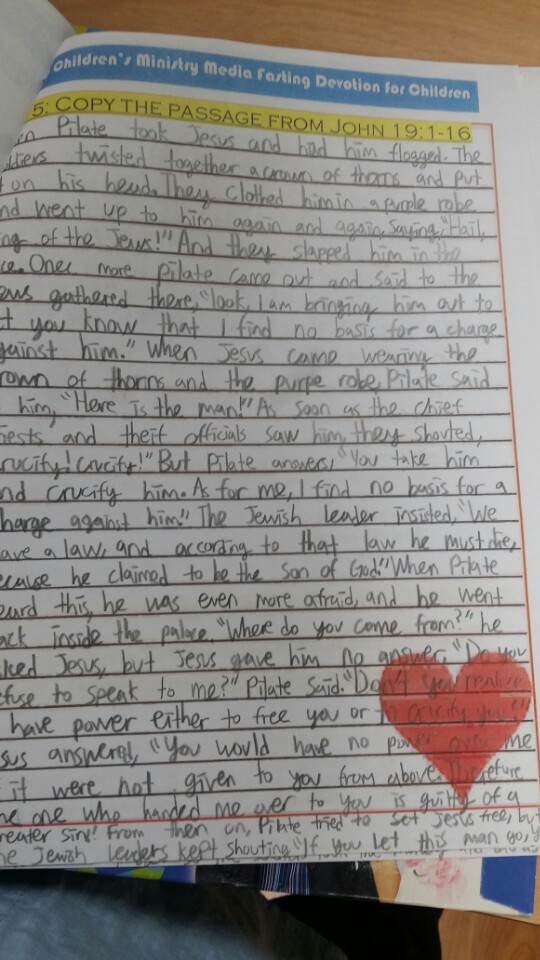 Children's Ministry Media Fasting Devotion for Children
5: COPY THE PASSAGE FROM JOHN 19:1-16
en Pilate took Jesus and had him flogged. The
diers twisted together a crown of thorns and put
t on his head. They clothed him in a purple robe
nd went up to him again and again, saying, "Hail,
ng of the Jews!" And they slapped him in the
ce. Once more Pilate came out and said to the
ews gathered there, "look, I am bringing him out to
t you know that I find no basis for a charge
gainst him." When Jesus came wearing the
rown of thorns and the purpe robe, Pilate said
him, "Here is the man!" As soon as the chief
iests, and theif officials saw him, they shouted,
rucify! Crucify!" But Pilate answers, "You take him
nd crucify him. As for me, I find no basis for a
harge against him." The Jewish leader insisted, "We
ave a law, and according to that law he must die,
ecause he claimed to be the son of God." When Pilate
eard this, he was even more afraid, and he went
ack inside the palace. "Where do you come from?" he
sked Jesus, but Jesus gave him no answer. "Do you
efuse to speak to me?" Pilate said. "Don't you realize
I have power either to free you or to crucify you?"
sus answered, "You would have no power over me
if it were not given to you from above. Therefore
he one who handed me over to you is guilty of a
reater sin." From then on, Pilate tried to set Jesus free, but
he Jewish leaders kept shouting, "If you let this man go, y